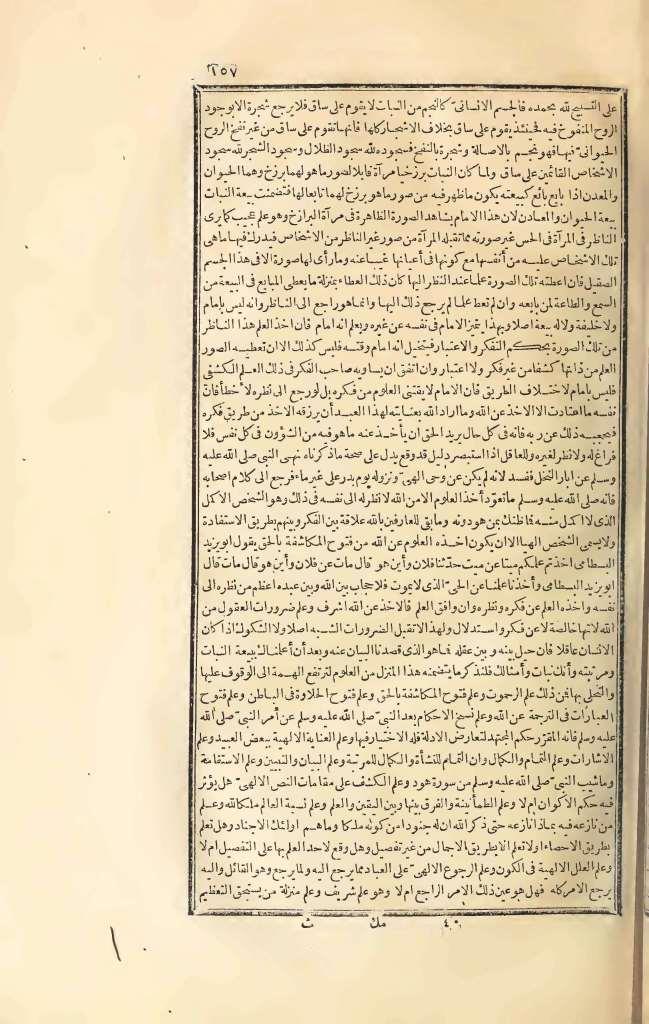 ١٥٧
على التسبيح لله بحمده فالجسم الانسانى كالنجم من النبات لا يقوم على ساق فلا يرجع شجرة الا بوجود
الروح المنفوخ فيه فحينئذ يقوم على ساق بخلاف الاشجار كلها فانها تقوم على ساق من غير نفخ الروح
الحيوانى فيها فهو نجم بالاصالة وشجرة بالنفخ فسجوده لله سجود الظلال وسجود الشجر لله سجود
الاشخاص القائمين على ساق ولما كان النبات برزخيا مرآة قابلا لصور ما هو لهما برزخ وهما الحيوان
والمعدن اذا بايع بايع كبيعته يكون ما ظهر فيه من صور ما هو برزخ لهما تابعا لها فتضمنت بيعة النبات
بيعة الحيوان والمعادن لان هذا الامام يشاهد الصورة الظاهرة فى مرآة البرازخ وهو علم عجيب كما يرى
الناظر فى المرآة فى الحس غير صورته مما تقبله المرآة من صور غير الناظر من الاشخاص فيدرك فيها ما هى
تلك الاشخاص عليه من أنفسها مع كونها فى أعيانها غيبا عنه وما رأى لها صورة الا فى هذا الجسم
الصقيل فان اعطته تلك الصورة علما عند النظر اليها كان ذلك العطاء بمنزلة ما يعطى المبايع فى البيعة من
السمع والطاعة لمن بايعه وان لم تعط علما لم يرجع ذلك اليها وانما هو راجع الى الناظر وانه ليس بامام
ولا خليفة ولا له بيعة اصلا وبهذا يتميز الامام فى نفسه عن غيره ويعلم انه امام فان اخذ العلم هذا الناظر
من تلك الصورة بحكم التفكر والاعتبار فيتخيل انه امام وقته فليس كذلك الا ان تعطيه الصور
العلم من ذاتها كشفا من غير فكر ولا اعتبار وان اتفق ان يساويه صاحب الفكر فى ذلك العلم الكشفى
فليس بامام لاختلاف الطريق فان الامام لا يقتنى العلوم من فكره بل لو رجع الى نظره لاخطأ فان
نفسه ما اعتادت الا الاخذ عن الله وما اراد الله بعنايته لهذا العبد أن يرزقه الاخذ من طريق فكره
فيحجبه ذلك عن ربه فانه فى كل حال يريد الحق ان يأخذ عنه ما هو فيه من الشؤون فى كل نفس فلا
فراغ له ولا نظر لغيره وللعاقل اذا استبصر دليل قد وقع يدل على صحة ما ذكرناه نهى النبى صلى الله عليه
وسلم عن ابار النخل ففسد لانه لم يكن عن وحى الهى ونزوله يوم بدر على غير ماء فرجع الى كلام اصحابه
فانه صلى الله عليه وسلم ما تعود أخذ العلوم الا من الله لا نظر له الى نفسه فى ذلك وهو الشخص الاكمل
الذى لا اكمل منه فما ظنك بمن هو دونه وما بقى للعارفين بالله علاقة بين الفكر وبينهم بطريق الاستفادة
ولا يسمى الشخص الهيا الا ان يكون اخذه العلوم عن الله من فتوح المكاشفة بالحق يقول ابو يزيد
البسطامى اخذتم علمكم ميتا عن ميت حدثنا فلان وأين هو قال مات عن فلان وأين هو قال مات قال
ابو يزيد البسطامى وأخذنا علمنا عن الحى الذى لا يموت فلا حجاب بين الله وبين عبده اعظم من نظره الى
نفسه واخذه العلم عن فكره ونظره وان وافق العلم فالاخذ عن الله اشرف وعلم ضرورات العقول من
الله لانها خالصة لا عن فكر واستدلال ولهذا لا تقبل الضرورات الشبه اصلا ولا الشكوك اذا كان
الانسان عاقلا فان حيل بينه وبين عقله فما هو الذى قصدنا البيان عنه وبعد أن أعلمناك ببيعة النبات
ومرتبته وأنك نبات وأمثالك فلنذكر ما يتضمنه هذا المنزل من العلوم لترتفع الهمة الى الوقوف عليها
والتحلى بها فمن ذلك علم الرحموت وعلم فتوح المكاشفة بالحق وعلم فتوح الحلاوة فى الباطن وعلم فتوح
العبارات فى الترجمة عن الله وعلم نسخ الاحكام بعد النبى صلى الله عليه وسلم عن أمر النبى صلى الله
عليه وسلم فانه المقرر حكم المجتهد لتعارض الادلة فله الاختيار فيها وعلم العناية الالهية ببعض العبيد وعلم
الاشارات وعلم التمام والكمال وان التمام للنشأة والكمال للمرتبة وعلم البيان والتبيين وعلم الاستقامة
وما شيب النبى صلى الله عليه وسلم من سورة هود وعلم الكشف على مقامات النص الالهى هل يؤثر
فيه حكم الاكوان ام لا وعلم الطمأنينة والفرق بينها وبين اليقين والعلم وعلم نسمة العالم ملكا لله وعلم
من نازعه فيه بماذا نازعه حتى ذكر الله ان له جنودا من كونه ملكا وما هم اولئك الاجناد وهل تعلم
بطريق الاحصاء او لا تعلم الا بطريق الاجمال من غير تفصيل وهل وقع لاحد العلم بها على التفصيل ام لا
وعلم العلل الالهية فى الكون وعلم الرجوع الالهى على العباد مما يرجع اليه ولما يرجع وهو القائل واليه
يرجع الامر كله فهل هو عين ذلك الامر الراجع ام لا وهو علم شريف وعلم منزلة من يستحق التعظيم
٤٠ مك ث